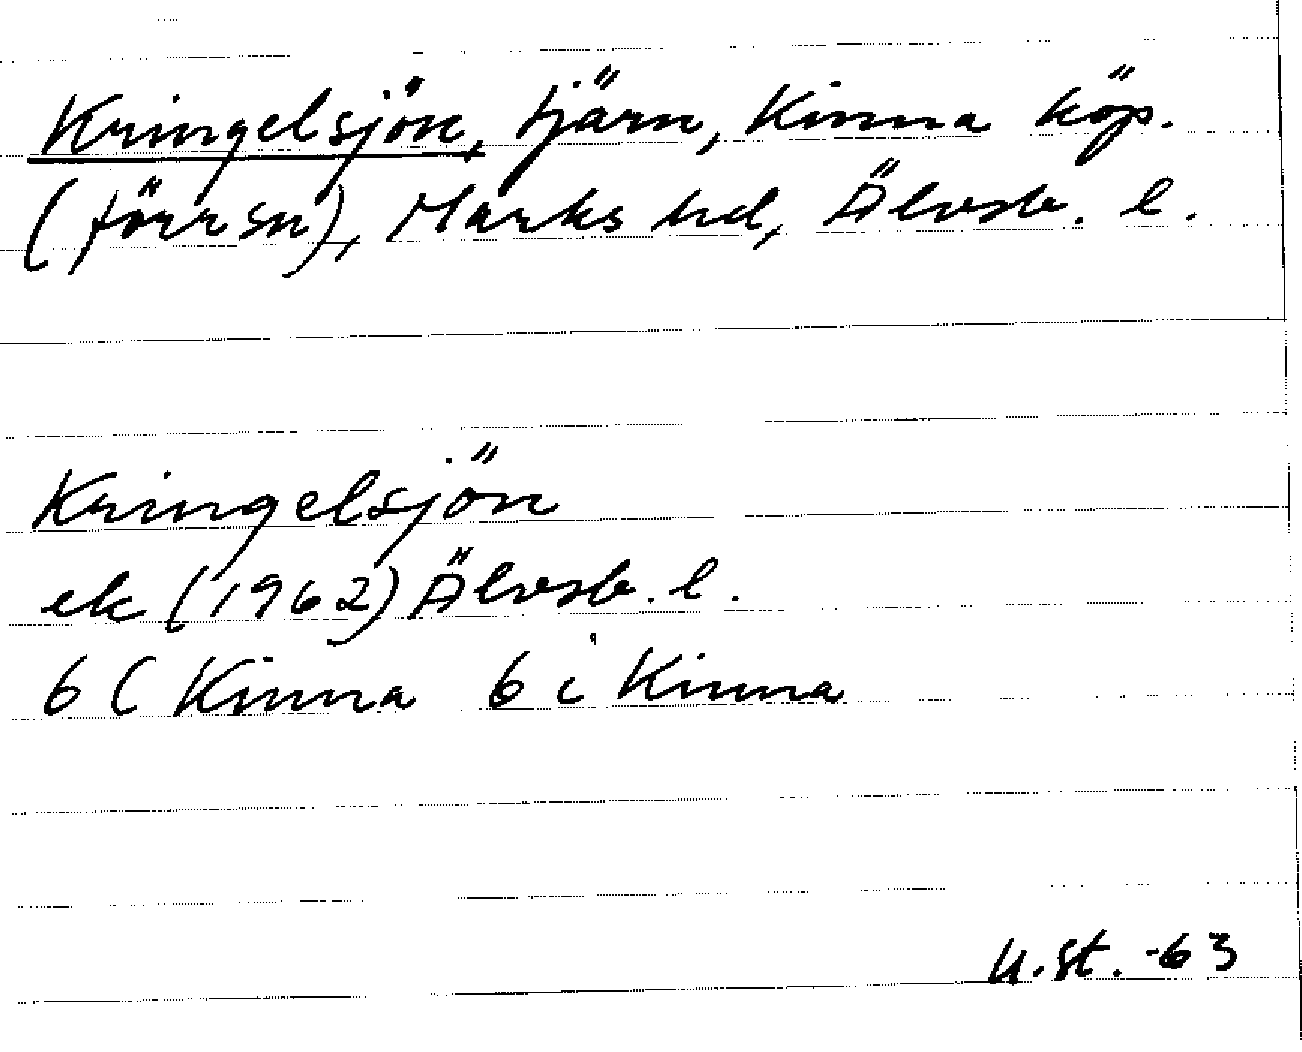 Kringelsjön, tjärn, Kinna köp.
(förr sn), Marks hd, Älvsb. l.
Kringelsjön
ek (1962) Älvsb. l.
6 C Kinna 6 i Kinna
U.St. -63